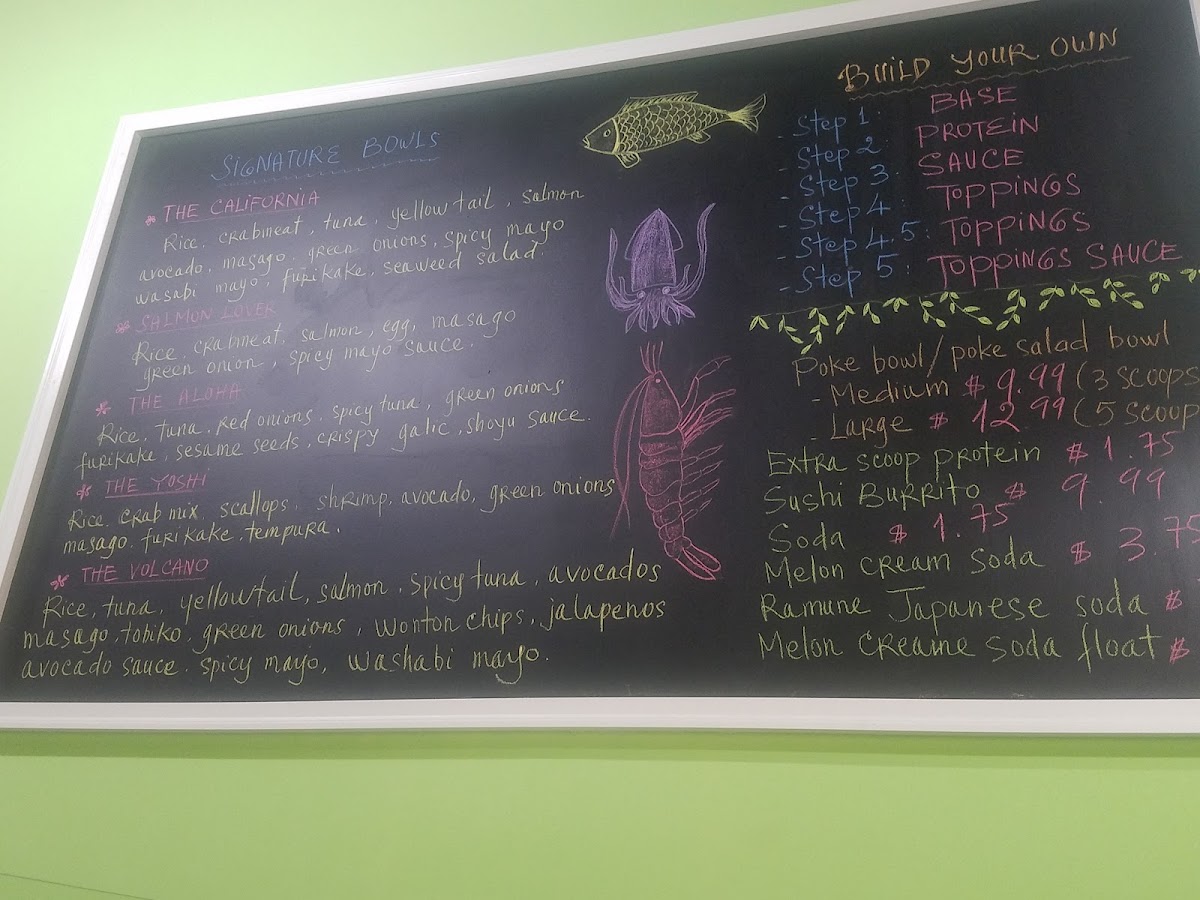 SIGNATURE BOWLS
* THE CALIFORNIA
Rice, crabmeat, tuna, yellowtail, salmon
avocado, masago, green onions, spicy mayo
wasabi mayo, furikake, seaweed salad.
* SALMON LOVER
Rice, crabmeat, salmon, egg, masago
green onion, spicy mayo sauce.
* THE ALOHA
Rice, tuna, red onions, spicy tuna, green onions
furikake, sesame seeds, crispy galic, shoyu sauce.
* THE YOSHI
Rice, crab mix, scallops, shrimp, avocado, green onions
masago, furikake, tempura.
* THE VOLCANO
Rice, tuna, yellowtail, salmon, spicy tuna, avocados
masago, tobiko, green onions, wonton chips, jalapenos
avocado sauce, spicy mayo, washabi mayo.
BUILD YOUR OWN
- Step 1: BASE
- Step 2: PROTEIN
- Step 3: SAUCE
- Step 4: TOPPINGS
- Step 4.5: TOPPINGS
- Step 5: TOPPINGS SAUCE
Poke bowl/poke salad bowl
- Medium $ 9.99 (3 scoops
- Large $ 12.99 (5 scoop
Extra scoop protein $ 1.75
Sushi Burrito $ 9.99
Soda $ 1.75
Melon cream soda $ 3.75
Ramune Japanese soda $
Melon creame soda float $